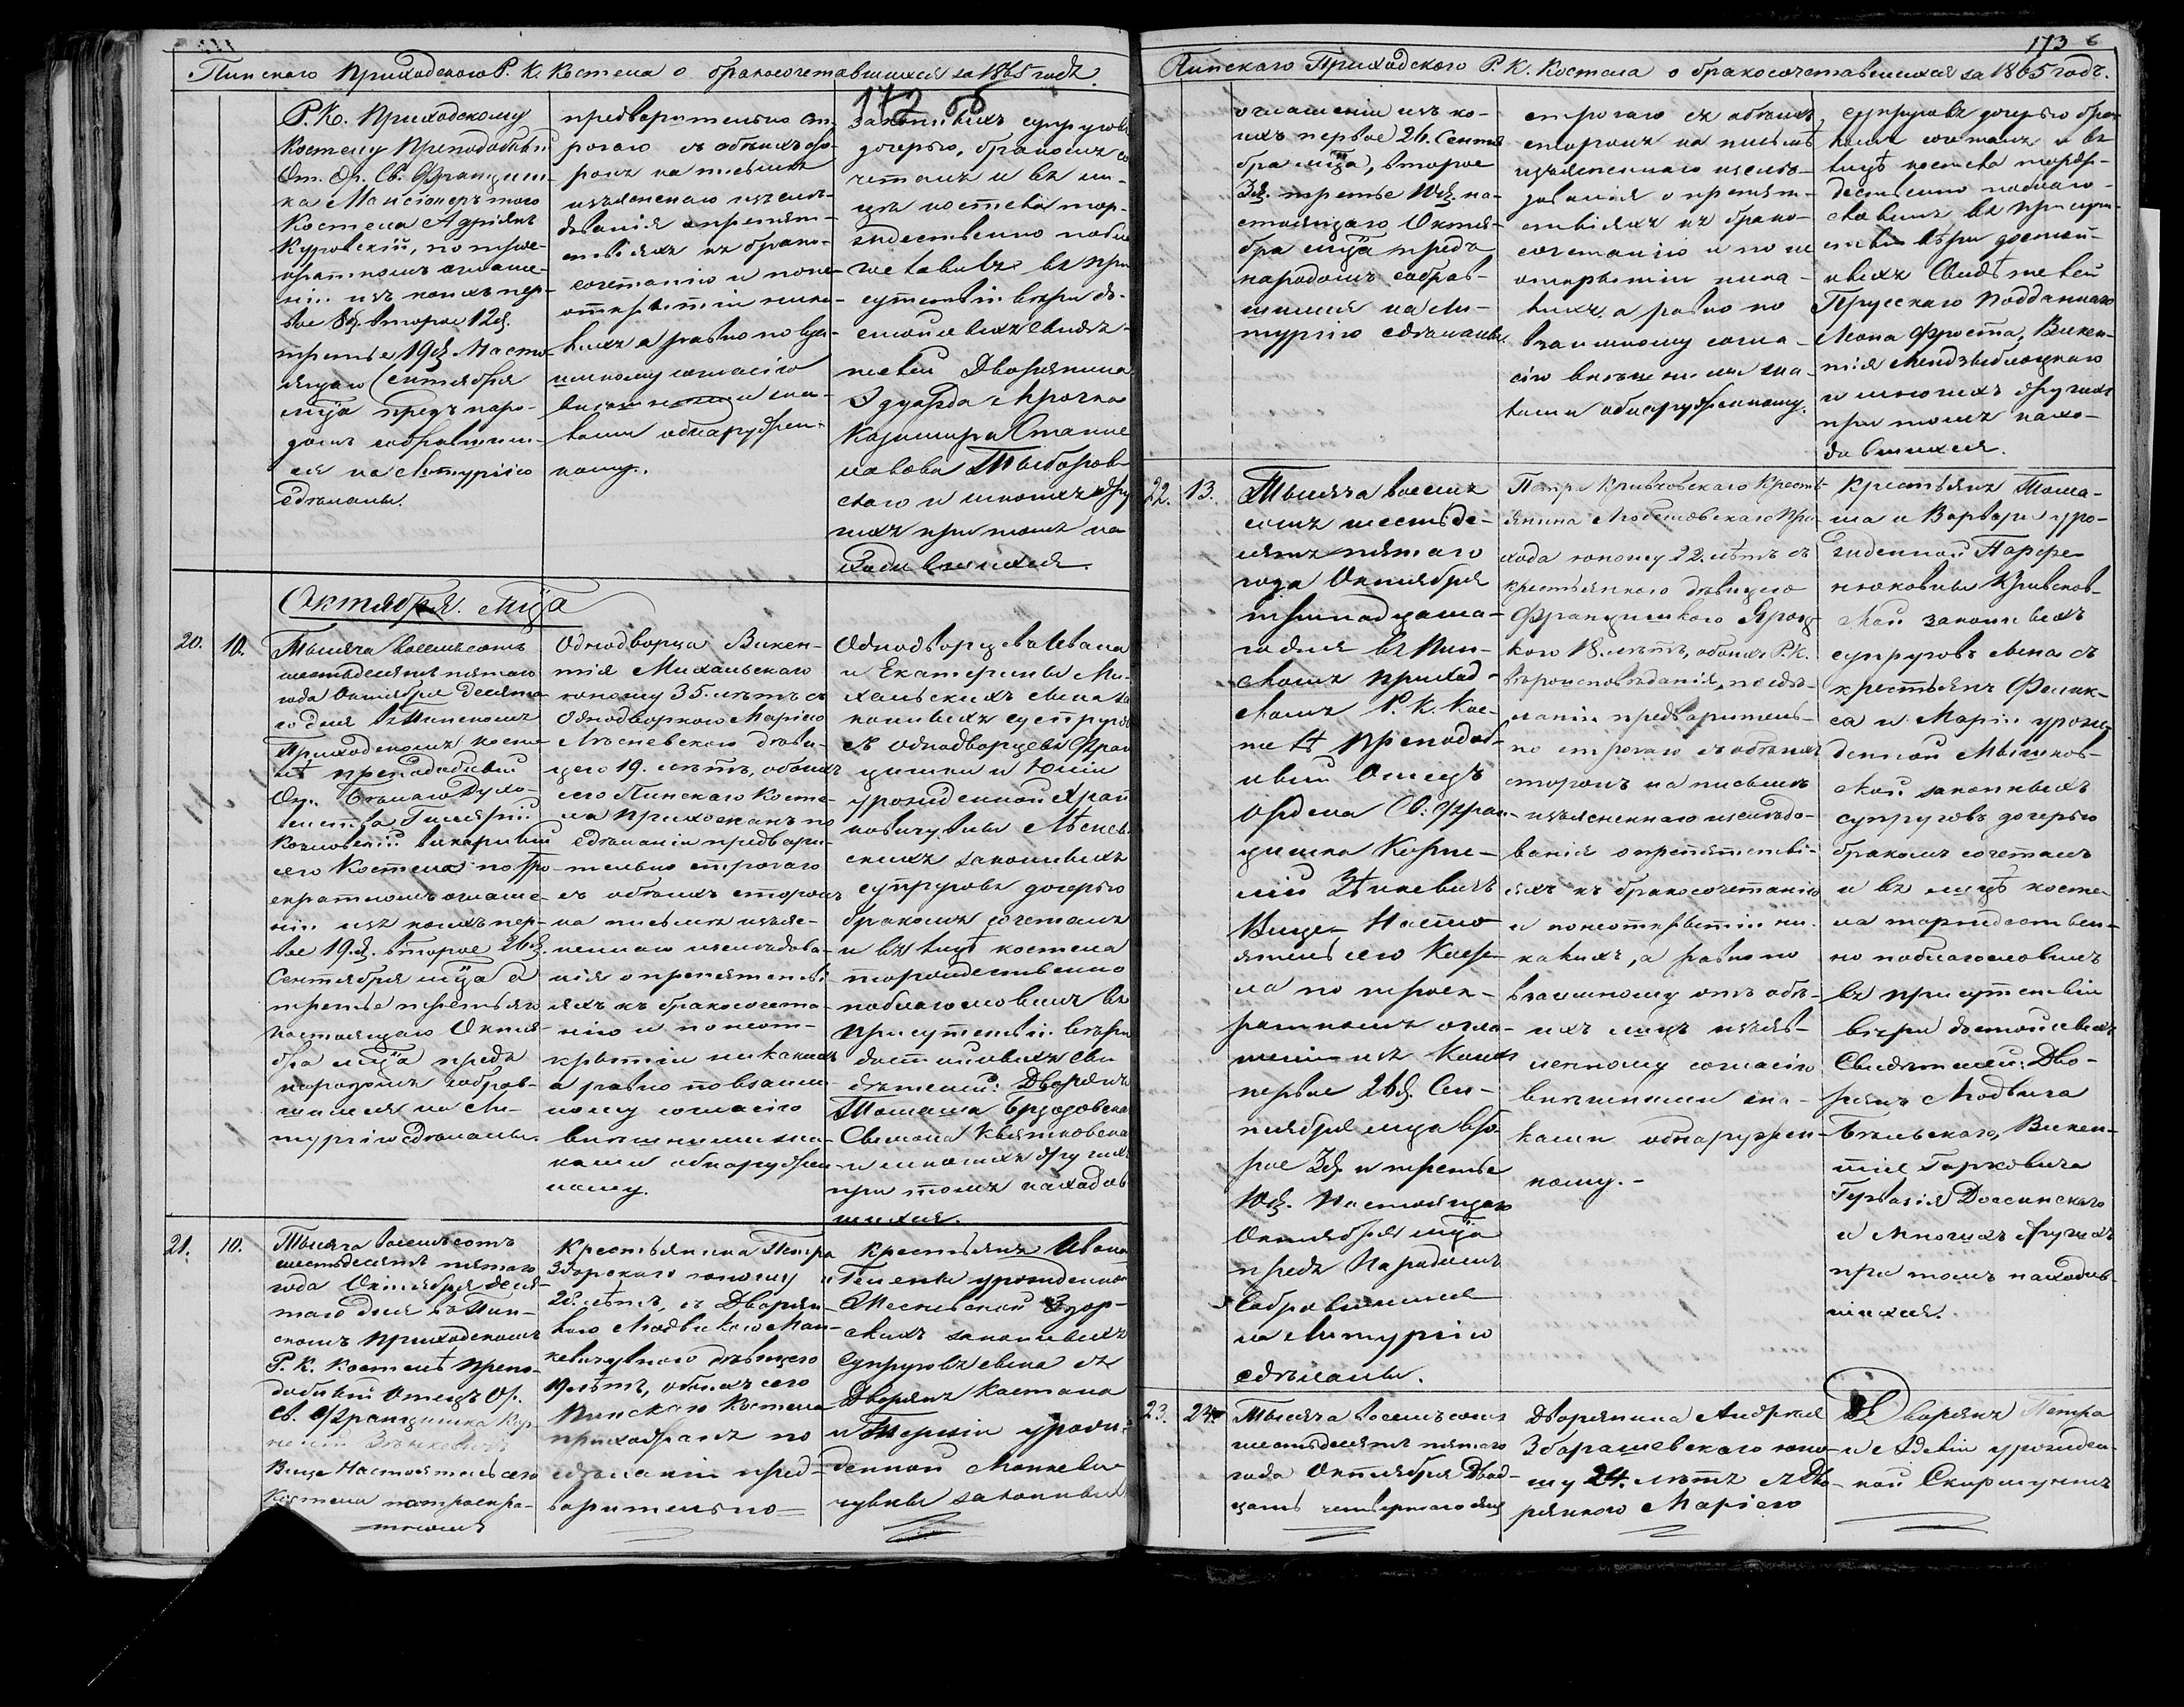 Пинскаго Приходскаго Р. К. Костела о бракосочетавшихся за 1865 годъ.
172 об
Р. К. Приходскому
Костелу Преподобный
От. Ор. Св. Францишка
Костела Адріянъ
Куровскій, по трое-
кратномъ оглаше-
ніи изъ коихъ пер-
вое 8д. второе 12д.
третье 19д. Насто-
ящаго Сентября
мца предъ наро-
домъ собравшим-
ся на Литургію
сдѣланы.
предварительно ст-
рогаго съ обѣихъ сто-
ронъ на письмѣ
изъясненаго изслѣ-
дованія о препят-
ствіяхъ къ брако-
сочетанію и по не-
открытіи ника-
кихъ а равно по вза-
имному согласію
внѣшними зна-
ками обнаружен-
ному.
законныхъ супруговъ
дочерью, бракомъ со-
четалъ и въ ли-
цѣ костела тор-
жественно побла-
гословилъ въ при
сутствіи вѣры до-
стойныхъ свидѣ-
телей Дворянина
Эдуарда
Казимира Станис
лавова
скаго и многихъ дру
гихъ при томъ на
ходившихся.
Октября. Мца
20.
10.
Тысяча восемьсотъ
шестьдесятъ пятаго
года Октября десята-
го дня въ Пинскомъ
Приходскомъ косте
лѣ преподобный
От. Бѣлаго Духо-
венства
викарный
сего Костела по трое-
кратномъ оглаше-
ніи изъ коихъ пер-
вое 19д. второе 26д.
Сентября мца а
третье третьяго
настоящаго Октя-
бра мца предъ
народомъ собрав-
шимся на Ли-
тургію сдѣланы.
Однодворца Викен-
тія Михальскаго
юношу 35. лѣтъ съ
Однодворкою Маріею
Лѣсневскою дѣви-
цею 19. лѣтъ, обоихъ
сего Пинскаго Косте-
ла прихожанъ по
сдѣланіи предвари-
тельно строгаго
съ обѣихъ сторонъ
на письмѣ изъяс-
неннаго изслѣдова-
нія о препятстві
яхъ къ бракосочета-
нію и по неот-
крытіи никакихъ
а равно по взаим-
ному согласію
внѣшними зна-
ками обнаружен
ному.
Однодворцевъ Ивана
и Екатерины Ми-
хальскихъ сына за
конныхъ супруговъ
съ однодворцевъ Фран
цишка и Юліи
урожденной
Лѣснев-
скихъ законныхъ
супруговъ дочерью
бракомъ сочеталъ
и въ лицѣ костела
торжественно
поблагословилъ въ
присутствіи вѣры
достойныхъ сви
дѣтелей: Дворянъ
Томаша
Симона Квятковска
и многихъ другихъ
при томъ находив
шихся.
21.
10.
Тысяча восемьсотъ
шестьдесятъ пятаго
года Октября деся-
таго дня въ Пин-
скомъ Приходскомъ
Р. К. Костелѣ Препо-
добный Отецъ Ор.
Св. Францишка Кор
нелій
Вице Настоятель сего
Костела по троекра-
тномъ
Крестьянина Петра
юношу
28. лѣтъ, съ Дворян-
кою Людвикою Ман-
кевичувною дѣвицею
лѣтъ, обоихъ сего
Пинскаго Костела
прихожанъ по
сдѣланіи пред-
варительно
крестьянъ Ивана
и урожденной
законныхъ
Супруговъ сына съ
Дворянъ Каетана
и Терезіи урож-
денной Манкеви-
чувны законныхъ
173 6
Пинскаго Приходскаго Р. К. Костела о бракосочетавшихся за 1865 годъ.
оглашеніи изъ ко-
ихъ первое 26. Сентя
бра мца, второе
3д. третье 10д. на-
стоящаго Октя-
бра мца предъ
народомъ собрав-
шимся на Ли-
тургію сдѣланы
строгаго съ обѣихъ
сторонъ на письмѣ
изъясненнаго изслѣ-
дованія о препят-
ствіяхъ къ брако-
сочетанію и по не
открытіи ника-
кихъ а равно по
взаимному согла-
сію внѣшними зна-
ками обнаруженному.
супруговъ дочерью бра-
комъ сочеталъ и въ
лицѣ костела торже-
ственно поблаго-
словилъ въ присут-
ствіи вѣры достой-
ныхъ Свидѣтелей
Прусскаго Подданнаго
Леона Фроста, Викен-
тія
и многихъ другихъ
при томъ нахо-
дившихся.
22.
13.
Тысяча восемь
сотъ шестьде-
сятъ пятаго
года Октября
тринадцата-
го дня въ Пин-
скомъ приход-
скомъ Р. К. Кос-
телѣ преподоб-
ный Отецъ
Ордена Св: Фран-
цишка Корне-
лій
Вице Насто-
ятель сего Косте-
ла по троек-
ратномъ огла-
шеніи изъ коихъ
первое 26д. Сен-
тября мца вто-
рое 3д. и третье
10д. Настоящаго
Октября мца
предъ Народомъ
Собравшимся
на Литургію
сдѣланы.
Петра Кривковскаго Кресть-
янина Любешовскаго При-
хода юношу 22. лѣтъ съ
крестьянкою дѣвицею
Францишкою
18. лѣтъ, обоихъ Р. К.
вѣроисповѣданія, по сдѣ-
ланіи предваритель-
но строгаго съ обѣихъ
сторонъ на письмѣ
изъясненнаго изслѣдо-
ванія о препятстві-
яхъ къ бракосочетанію
и по неоткрытіи ни-
какихъ, а равно по
взаимному отъ обѣ-
ихъ лицъ изъяв-
ленному согласію
внѣшними зна-
ками обнаружен-
ному. -
Крестьянъ Тома-
ша и Варвары уро-
жденной Парфе-
нюковны Кривков-
ской законныхъ
супруговъ сына съ
крестьянъ Фелик-
са и Маріи урож-
денной
законныхъ
супруговъ дочерью
бракомъ сочеталъ
и въ лицѣ косте-
ла торжествен-
но поблагословилъ
въ присутствіи
вѣры достойныхъ
Свидѣтелей: Дво-
рянъ Людвига
Бѣльскаго, Викен-
тія Гарковича
Гервасія
и Многихъ другихъ
при томъ находив-
шихся.
23.
24.
Тысяча восемьсотъ
шестьдесятъ пятаго
года Октября Двад-
цать четвертаго дня
Дворянина Андрея
юно-
шу 24. лѣтъ съ Дво-
рянкою Маріею
Дворянъ Петра
и урожден-
ной Скирмунтъ